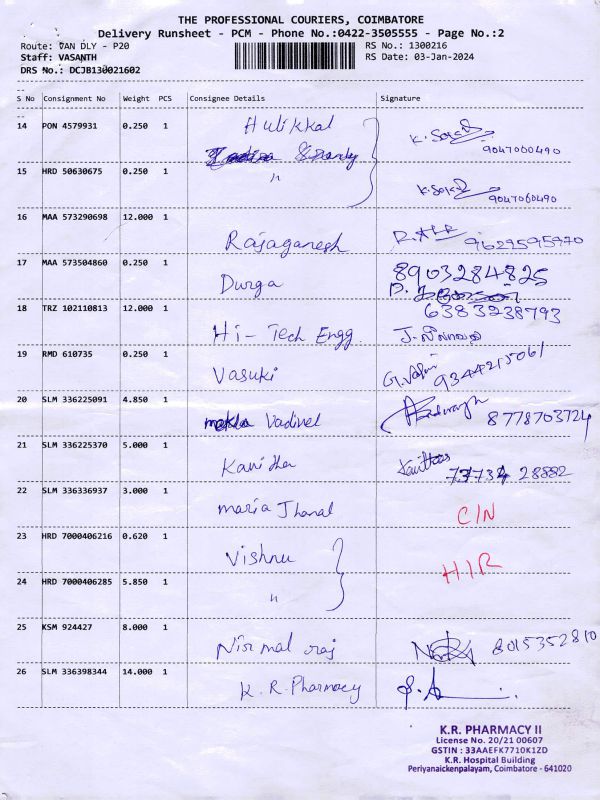 THE PROFESSIONAL COURIERS, COIMBATORE
Delivery Runsheet - PCM - Phone No.:0422-3505555 - Page No.:2
Route: VAN DLY - P20 RS No.: 1300216
Staff: VASANTH RS Date: 03-Jan-2024
DRS No.: DCJB130021602
S No Consignment No Weight PCS Consignee Details Signature
14 PON 4579931 0.250 1 Hulikkal
9047060490
15 HRD 50630675 0.250 1 "
9047060490
16 MAA 573290698 12.000 1 Rajaganesh 9629595970
17 MAA 573504860 0.250 1 Durga 8903284825
18 TRZ 102110813 12.000 1 Hi-Tech Engg 6383238793
19 RMD 610735 0.250 1 Vasuki 9344215061
20 SLM 336225091 4.850 1 Vadivel 8778703724
21 SLM 336225370 5.000 1 Kavitha 28882
22 SLM 336336937 3.000 1 maria Jhanal C/N
23 HRD 7000406216 0.620 1 Vishnu H.I.R
24 HRD 7000406285 5.850 1 "
25 KSM 924427 8.000 1 Nirmal raj 8015352810
26 SLM 336398344 14.000 1 K.R.Pharmacy
K.R. PHARMACY II
License No. 20/21 00607
GSTIN : 33AAEFK7710K1ZD
K.R. Hospital Building
Periyanaickenpalayam, Coimbatore - 641020